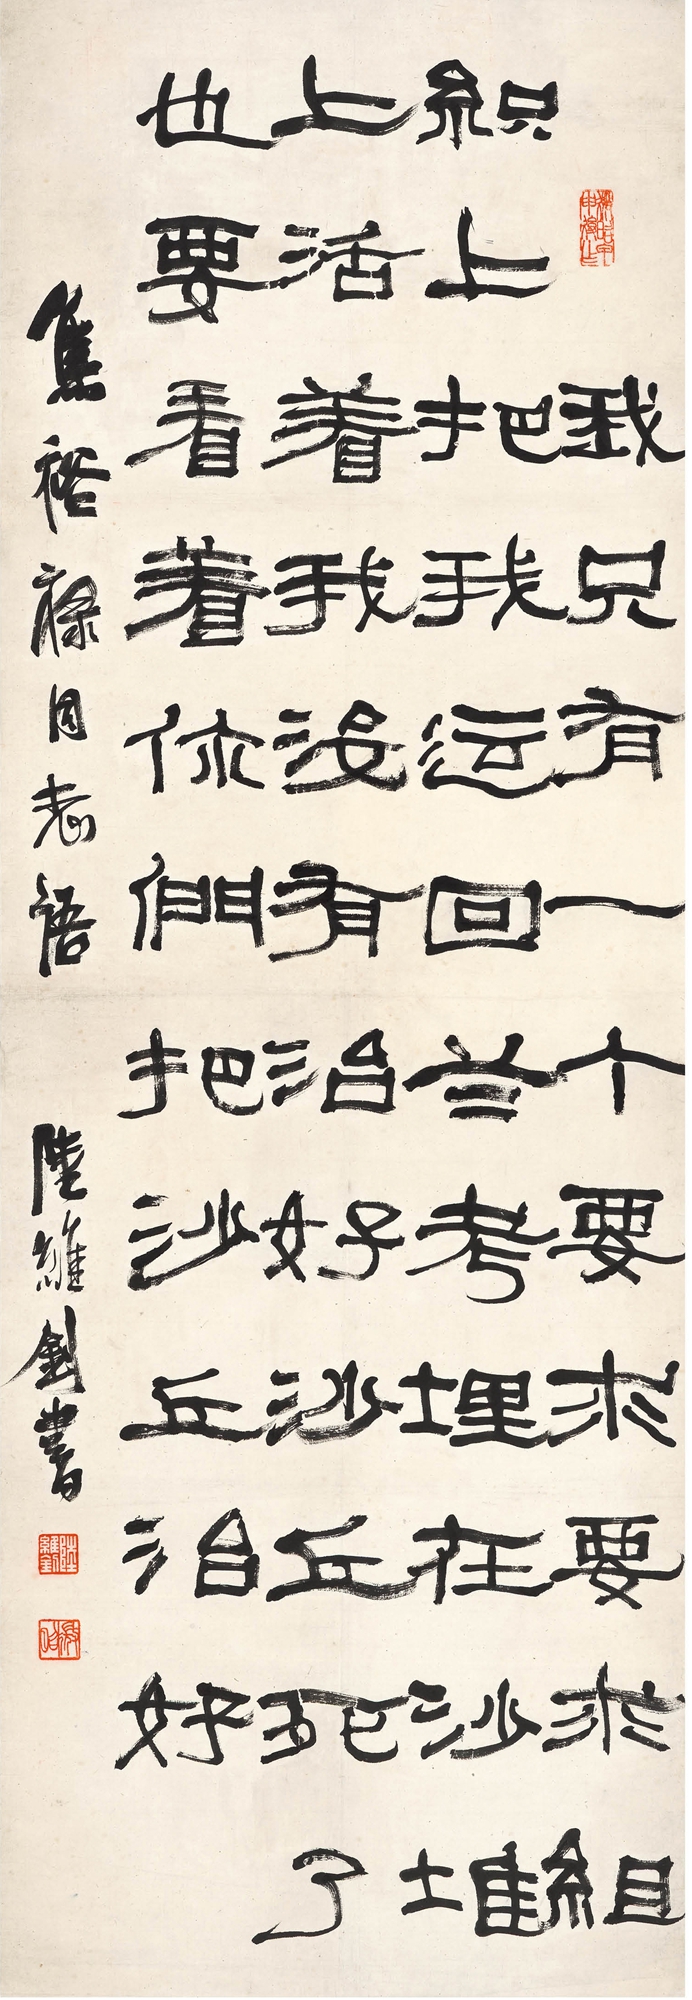 我只有一个要求要求組
织上把我运回兰考埋在沙堆
上活着我没有治好沙丘死了
也要看着你們把沙丘治好
焦裕禄同志語 陸維釗書
陸維釗